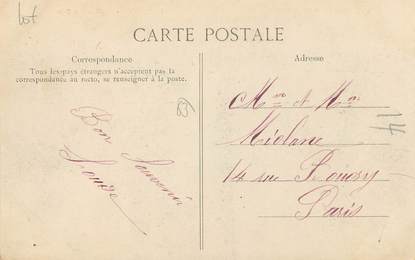 lot
CARTE POSTALE
Correspondance
Tous les pays étrangers n'acceptent pas la
correspondance au recto, se renseigner à la poste.
Bon Souvenir
Louise
Adresse
Mme et Mr
Miolane
14 rue
Paris